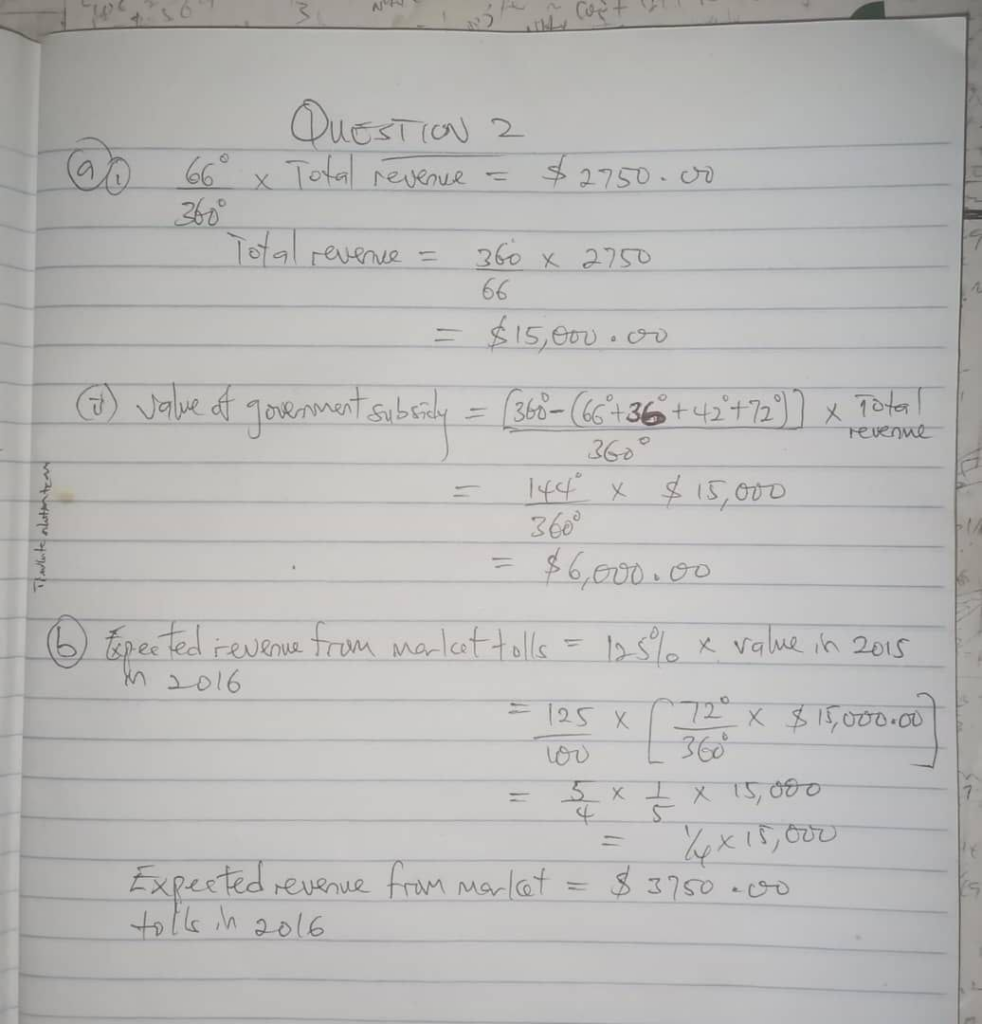 QUESTION 2
(a) (i) 66°/360° × Total revenue = $2750.00
Total revenue = 360/66 × 2750
= $15,000.00
(ii) Value of government subsidy = [360° - (66° + 36° + 42° + 72°)]/360° × Total revenue
= 144°/360° × $15,000
= $6,000.00
(b) Expected revenue from market tolls = 125% × value in 2015
in 2016
= 125/100 × [72°/360° × $15,000.00]
= 5/4 × 1/5 × 15,000
= 1/4 × 15,000
Expected revenue from market = $3750.00
tolls in 2016